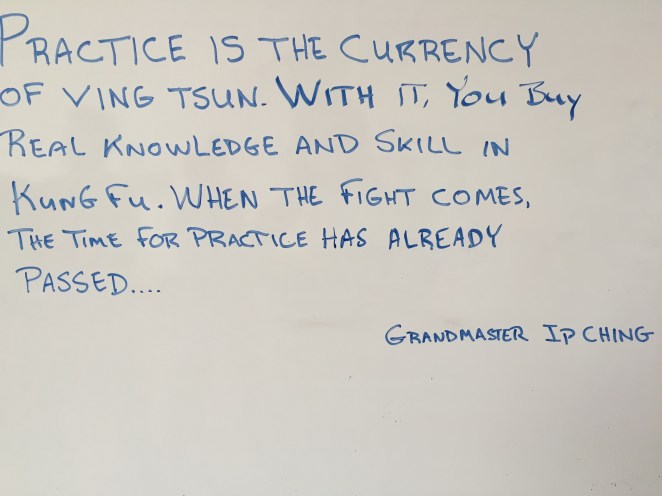 PRACTICE IS THE CURRENCY
OF VING TSUN. WITH IT, YOU BUY
REAL KNOWLEDGE AND SKILL IN
KUNG FU. WHEN THE FIGHT COMES,
THE TIME FOR PRACTICE HAS ALREADY
PASSED....
GRANDMASTER IP CHING